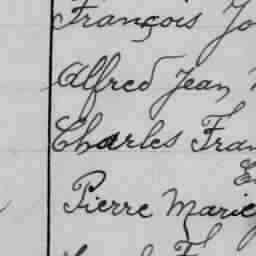 François Jo
Alfred Jean
Charles Fran
E
Pierre Marie